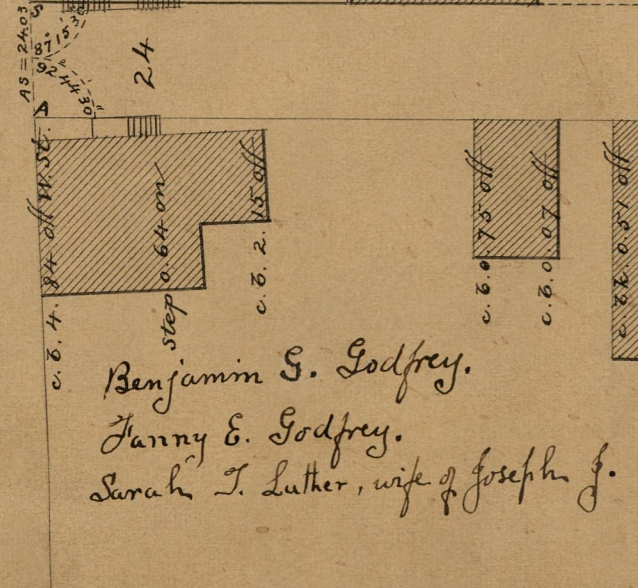 S
AS = 24.03
87° 15' 30"
92° 44' 30"
24
A
c.b. 4.84 off W. St.
step 0.64 on
c.b. 2.15 off
c.b. 0.75 off
c.b. 0.07 off
c. bk. 0.51 off
Benjamin G. Godfrey.
Fanny E. Godfrey.
Sarah T. Luther, wife of Joseph J.